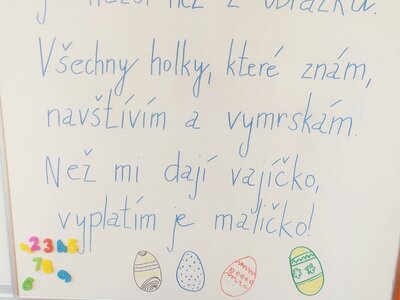 než z obrázku.
Všechny holky, které znám,
navštívím a vymrskám.
Než mi dají vajíčko,
vyplatím je maličko!
2345
78 9
6